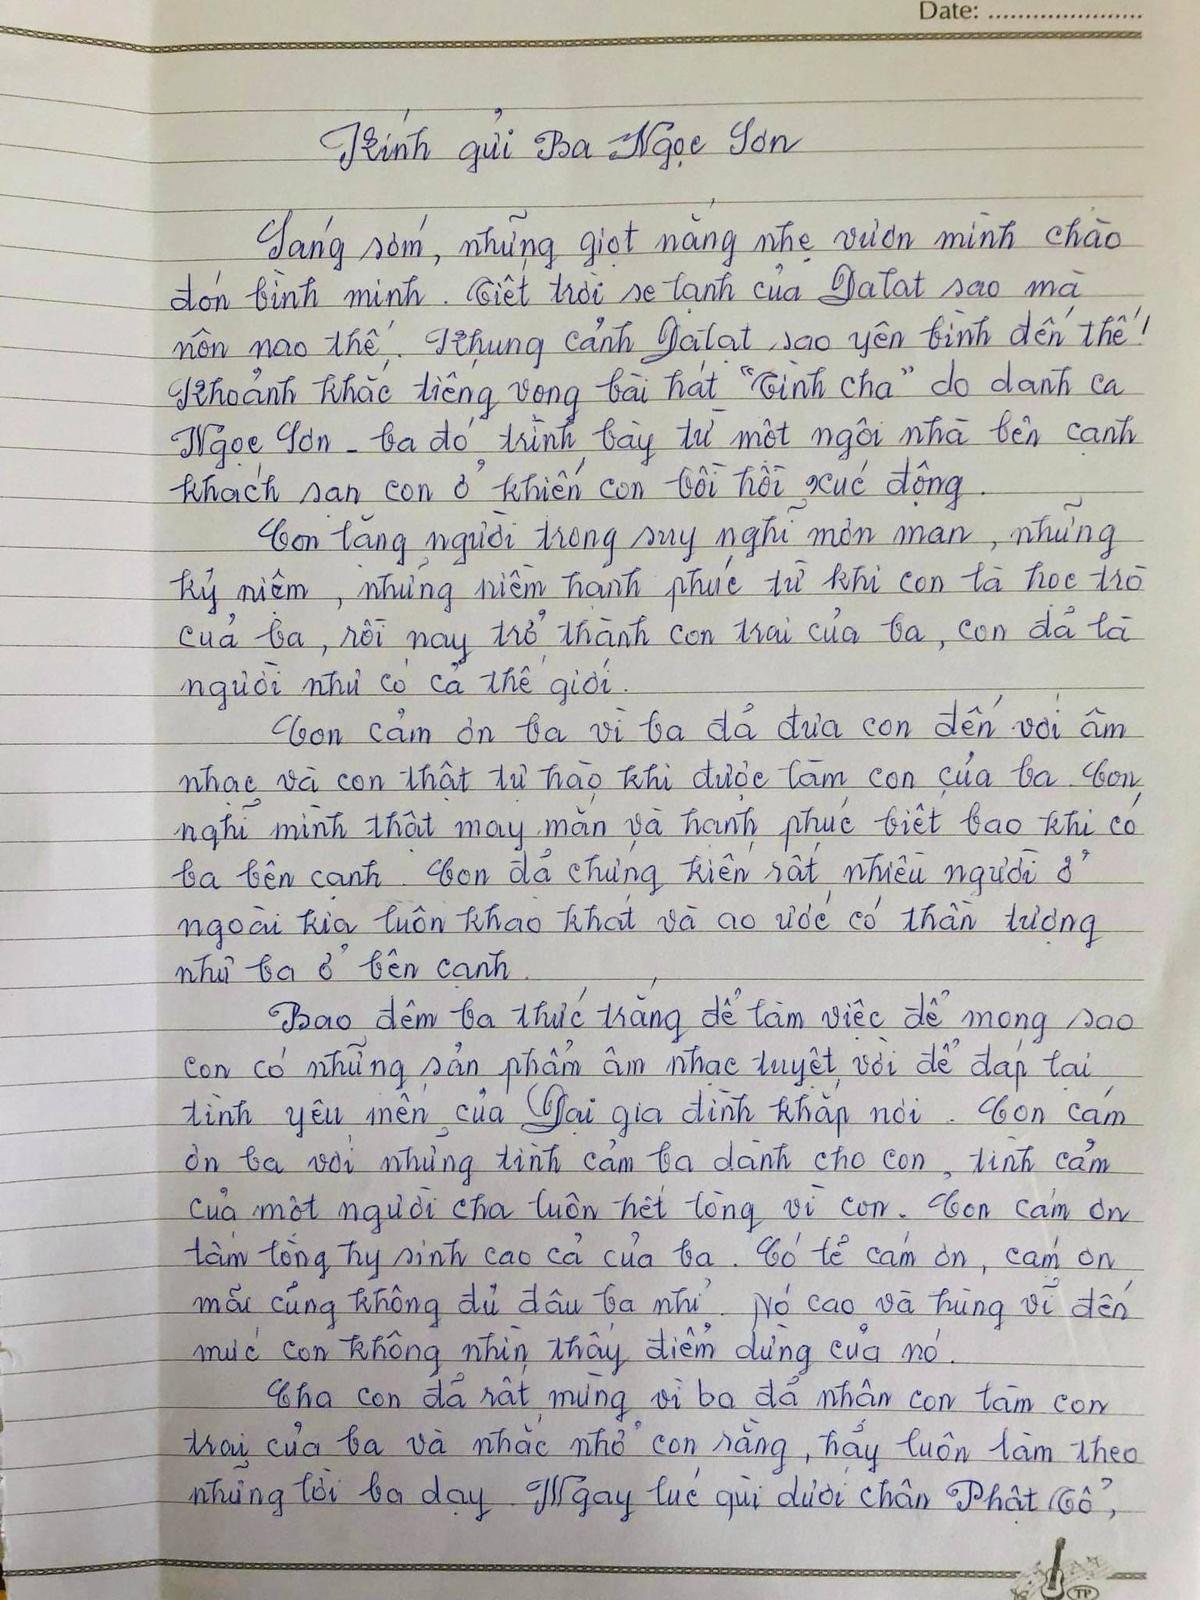 Date: ......................
Kính gửi Ba Ngọc Sơn
Sáng sớm, những giọt nắng nhẹ vươn mình chào
đón bình minh. Tiết trời se lạnh của Dalat sao mà
nôn nao thế. Khung cảnh Dalat sao yên bình đến thế!
Khoảnh khắc tiếng vọng bài hát "Tình cha" do danh ca
Ngọc Sơn - ba đó trình bày từ một ngôi nhà bên cạnh
khách sạn con ở khiến con bồi hồi xúc động.
Con lặng người trong suy nghĩ mơn man, những
kỷ niệm, những niềm hạnh phúc từ khi con là học trò
của ba, rồi nay trở thành con trai của ba, con đã là
người như có cả thế giới.
Con cảm ơn ba vì ba đã đưa con đến với âm
nhạc và con thật tự hào khi được làm con của ba. Con
nghĩ mình thật may mắn và hạnh phúc biết bao khi có
ba bên cạnh. Con đã chứng kiến rất nhiều người ở
ngoài kia luôn khao khát và ao ước có thần tượng
như ba ở bên cạnh.
Bao đêm ba thức trắng để làm việc để mong sao
con có những sản phẩm âm nhạc tuyệt vời để đáp lại
tình yêu mến của Đại gia đình khắp nơi. Con cám
ơn ba với những tình cảm ba dành cho con, tình cảm
của một người cha luôn hết lòng vì con. Con cám ơn
tấm lòng hy sinh cao cả của ba. Có lẽ cám ơn, cám ơn
mãi cũng không đủ đâu ba nhỉ. Nó cao và hùng vĩ đến
mức con không nhìn thấy điểm dừng của nó.
Cha con đã rất mừng vì ba đã nhận con làm con
trai của ba và nhắc nhở con rằng, hãy luôn làm theo
những lời ba dạy. Ngay lúc quì dưới chân Phật Tổ,
TP